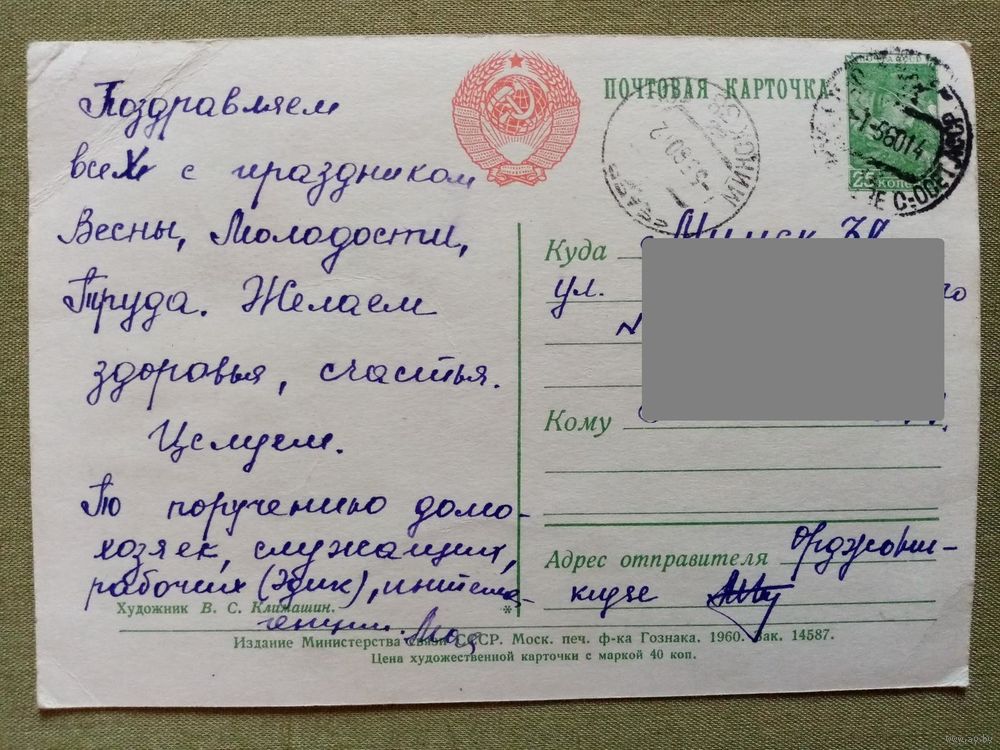 Поздравляем
всех с праздником
Весны, Молодости,
Труда. Желаем
здоровья, счастья.
Целуем.
По поручению домо-
хозяек, служащих,
рабочих (Эдик), интелли-
генции.
ПОЧТОВАЯ КАРТОЧКА
25 КОП
Куда Минск
ул.
Кому
Адрес отправителя Орджони-
кидзе
Художник В. С. Климашин.
Издание Министерства связи СССР. Моск. печ. ф-ка Гознака. 1960. Зак. 14587.
Цена художественной карточки с маркой 40 коп.